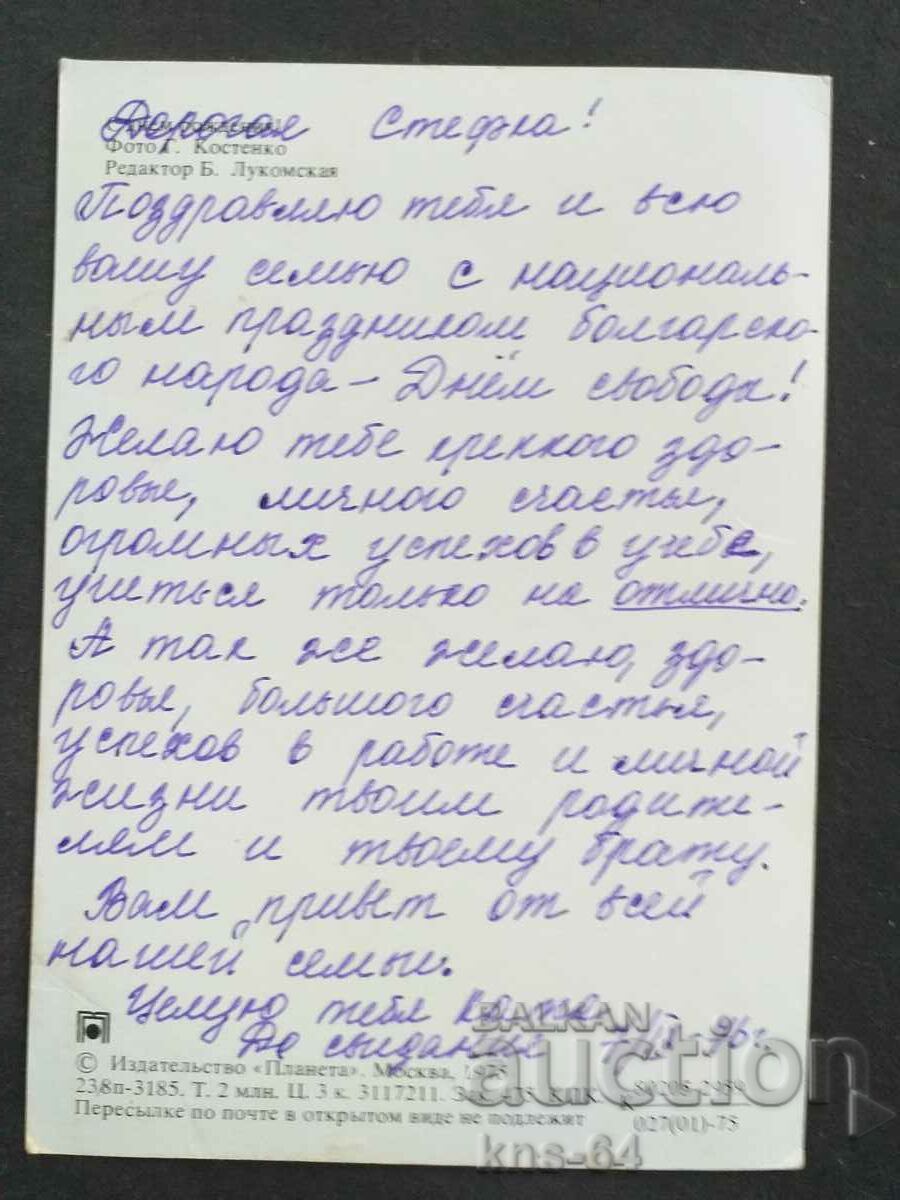 Дорогая Стефка!
Фото Г. Костенко
Редактор Б. Лукомская
Поздравляю тебя и всю
вашу семью с националь-
ным праздником болгарско-
го народа – Днём свободы!
Желаю тебе крепкого здо-
ровье, личного счастья,
огромных успехов в учёбе,
учиться только на отлично.
А так же желаю, здо-
ровья, большого счастья,
успехов в работе и личной
жизни твоим родите-
лям и твоему брату.
Вам привет от всей
нашей семьи.
Целую тебя
До свидание
© Издательство «Планета». Москва, 1975
238п-3185. Т. 2 млн. Ц. 3 к. 3117211. Зак.
80205-2959
Пересылке по почте в открытом виде не подлежит
027(01)-75
BALKAN
auction
kns-64